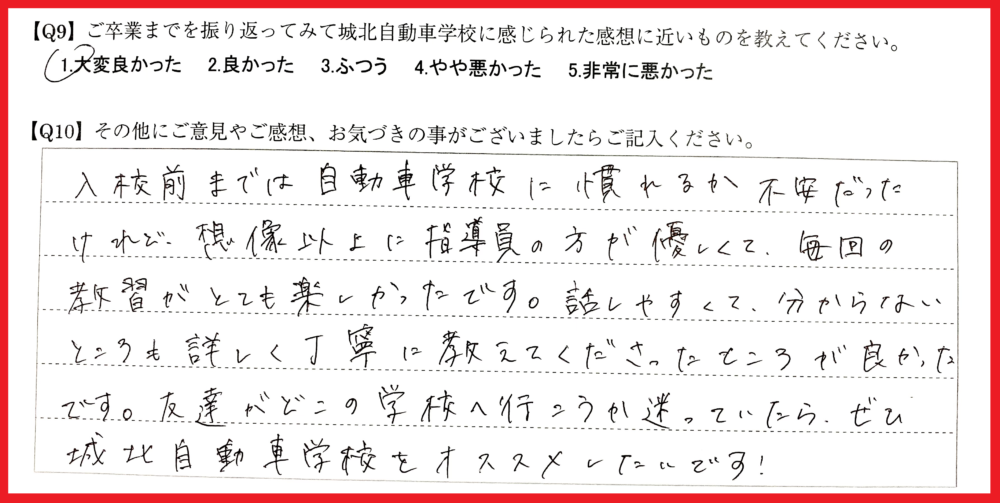 【Q9】ご卒業までを振り返ってみて城北自動車学校に感じられた感想に近いものを教えてください。
1.大変良かった 2.良かった 3.ふつう 4.やや悪かった 5.非常に悪かった
【Q10】その他にご意見やご感想、お気づきの事がございましたらご記入ください。
入校前までは自動車学校に慣れるか不安だった
けれど、想像以上に指導員の方が優しくて、毎回の
教習がとても楽しかったです。話しやすくて、分からない
ところも詳しく丁寧に教えてくださったところが良かった
です。友達がどこの学校へ行こうか迷っていたら、ぜひ
城北自動車学校をオススメしたいです!